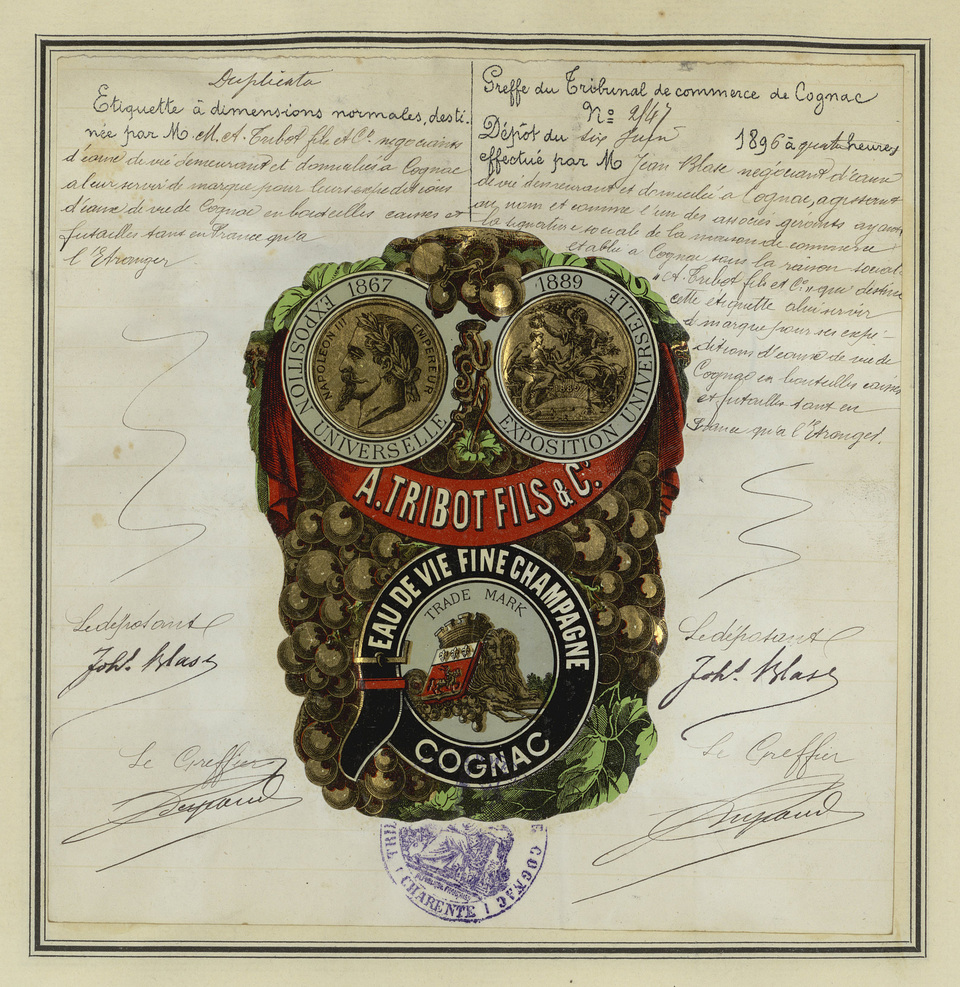 Duplicata
Etiquette à dimensions normales, desti-
née par M. M. A. Tribot fils et Cie négociants
d'eaux de vie demeurant et domiciliés à Cognac
a leur servir de marque pour leurs expéditions
d'eaux de vie de Cognac en bouteilles caisses et
futailles tant en France qu'a
l'Etranger
Greffe du Tribunal de commerce de Cognac
No 2147
Dépôt du six Juin 1896 à quatre heures
effectué par M Jean Blase négociant d'eaux
de vie demeurant et domicilié à Cognac, agissant
au nom et comme l'un des associés gérants ayant
la signature sociale de la maison de commerce
etablie à Cognac sous la raison sociale
"A. Tribot fils et Cie" que destine
cette etiquette a lui servir
d marque pour ses expé-
ditions d'eaux de vie de
Cognac en bouteilles caisses
et futailles tant en
France qu'a l'Etranger.
EXPOSITION UNIVERSELLE
1867
NAPOLEON III EMPEREUR
1889
EXPOSITION UNIVERSELLE
A. TRIBOT FILS & Co.
EAU DE VIE FINE CHAMPAGNE
TRADE MARK
COGNAC
Le déposant
Joht. Blase
Le Greffier
Le déposant
Joht. Blase
Le Greffier
COGNAC
CHARENTE